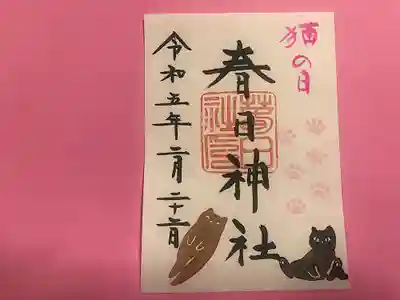 猫の日
春日神社
令和五年二月二十二日